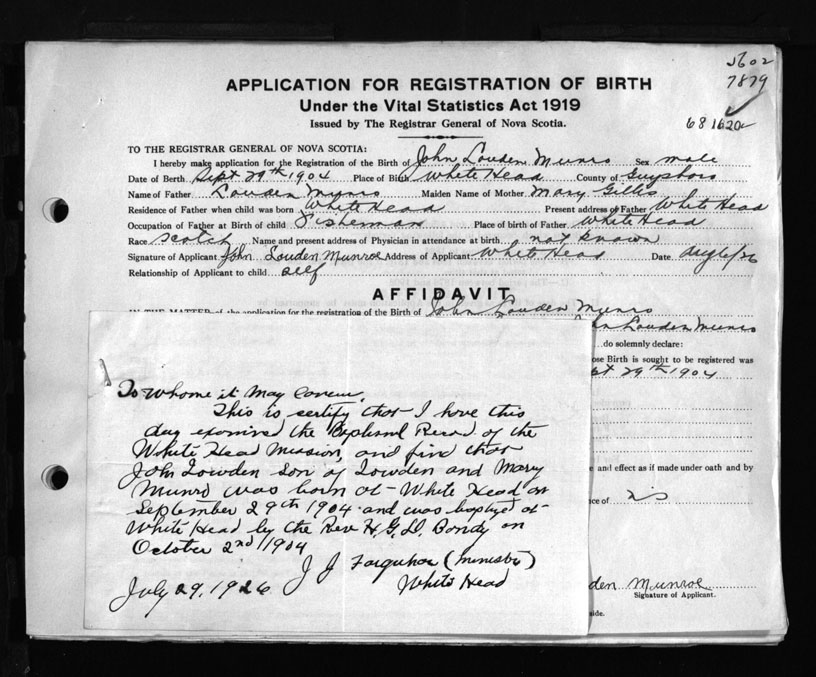 5602
7879
68 1620
APPLICATION FOR REGISTRATION OF BIRTH
Under the Vital Statistics Act 1919
Issued by The Registrar General of Nova Scotia.
TO THE REGISTRAR GENERAL OF NOVA SCOTIA:
I hereby make application for the Registration of the Birth of John Louden Munro Sex male
Date of Birth Sept 29th 1904 Place of Birth White Head County of Guysboro
Name of Father Louden Munro Maiden Name of Mother Mary Gillis
Residence of Father when child was born White Head Present address of Father White Head
Occupation of Father at Birth of child Fisherman Place of birth of Father White Head
Race Scotch Name and present address of Physician in attendance at birth not known
Signature of Applicant John Louden Munroe Address of Applicant White Head Date Aug 6/26
Relationship of Applicant to child self
AFFIDAVIT
IN THE MATTER of the application for the registration of the Birth of John Louden Munro
hn Louden Munro
do solemnly declare:
ose Birth is sought to be registered was
pt 29th 1904
e and effect as if made under oath and by
nce of N.S
den Munroe
Signature of Applicant.
side.
To Whome it May Concern,
This is sertify that I have this
day examined the Baptismal Record of the
White Head Mission, and find that
John Lowden Son of Lowden and Mary
Munro was born at White Head on
September 29th 1904 and was baptized at
White Head by the Rev H. G. D. Bondy on
October 2nd 1904
J J Farquhar (Minister)
July 29, 1926 White Head